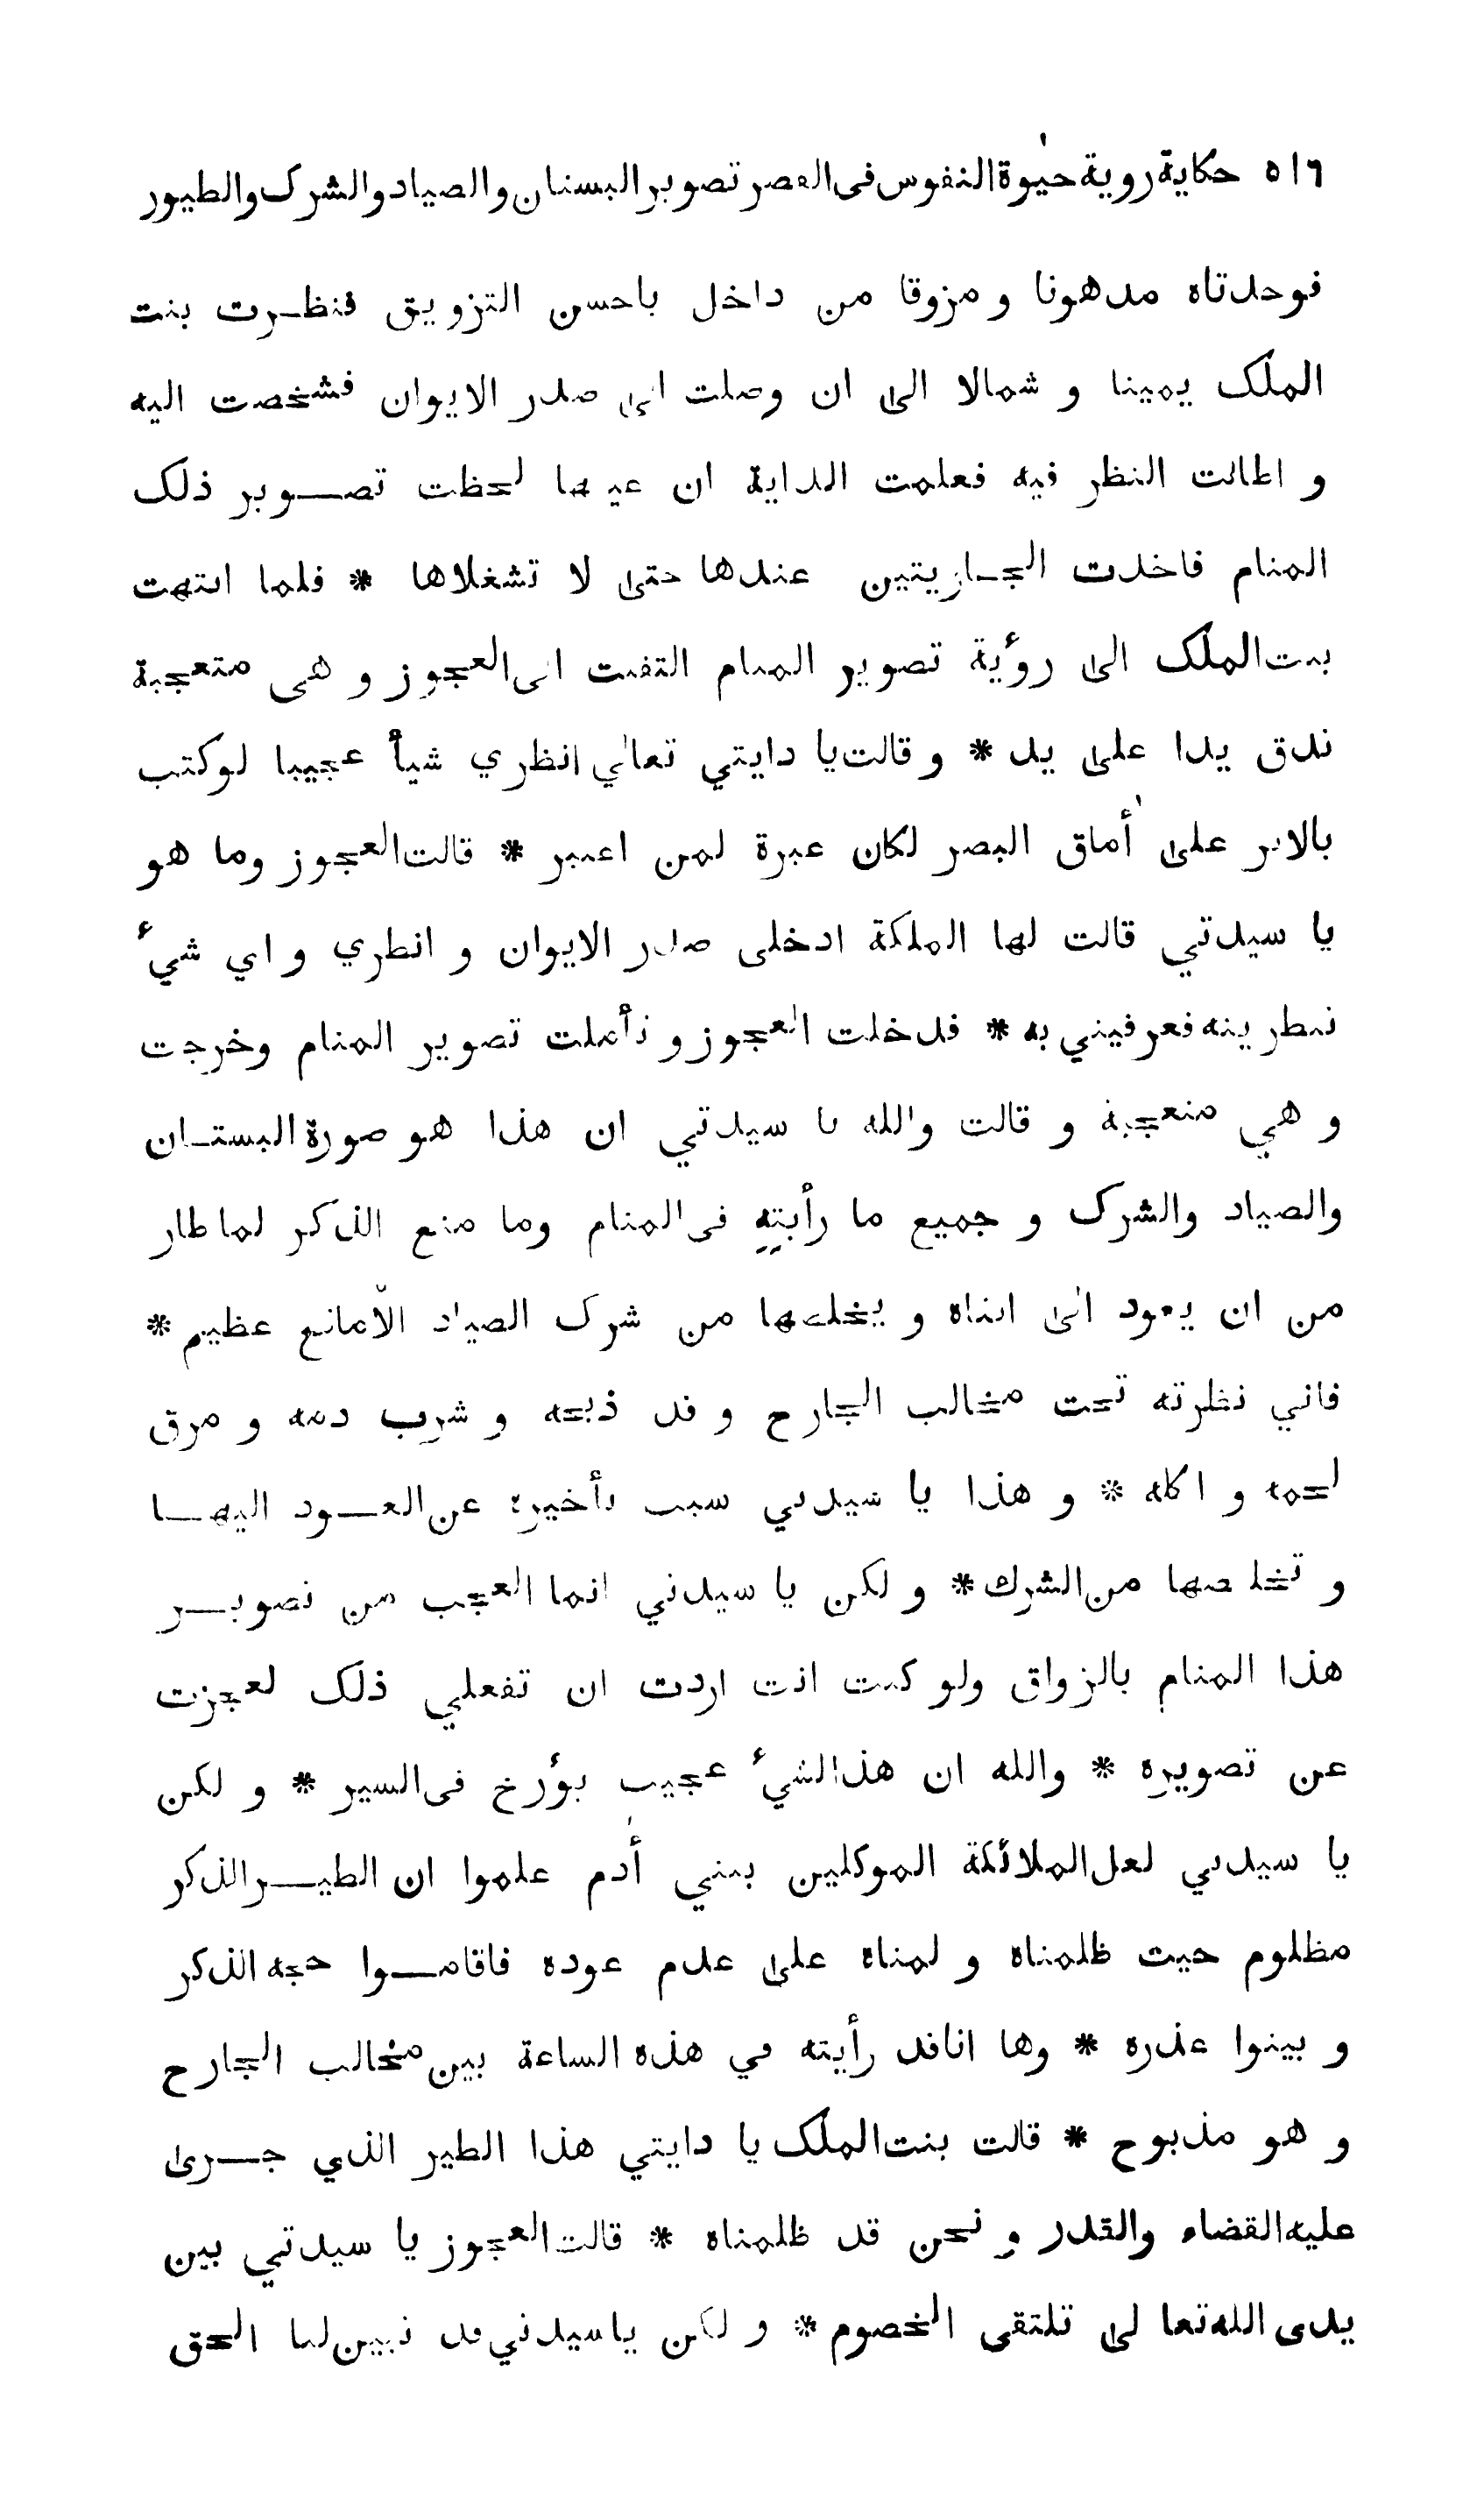 ٥١٦ حكاية روية حيٰوة النفوس فى القصر تصوير البستان والصياد والشرك والطيور
فوجدتاه مدهونا و مزوقا من داخل باحسن التزويق فنظرت بنت
الملك يمينا و شمالا الى ان وصلت الى صدر الايوان فشخصت اليه
و اطالت النظر فيه فعلمت الداية ان عينها لحظت تصوير ذلك
المنام فاخذت الجاريتين عندها حتى لا تشغلاها * فلما انتهت
بنت الملك الى رؤية تصوير المنام التفتت الى العجوز و هى متعجبة
تدق يدا على يد * و قالت يا دايتي تعالي انظري شيأ عجيبا لو كتب
بالابر على أماق البصر لكان عبرة لمن اعتبر * قالت العجوز وما هو
يا سيدتي قالت لها الملكة ادخلى صدر الايوان و انظري و اي شيء
تنظرينه فعرفيني به * فدخلت العجوز و تأملت تصوير المنام وخرجت
و هي متعجبة و قالت والله يا سيدتي ان هذا هو صورة البستان
والصياد والشرك و جميع ما رأيتيه فى المنام وما منع الذكر لما طار
من ان يعود الى انثاه و يخلصها من شرك الصياد الّا مانع عظيم *
فاني نظرته تحت مخالب الجارح و قد ذبحه و شرب دمه و مزق
لحمه و اكله * و هذا يا سيدتي سبب تأخيره عن العود اليها
و تخلصها من الشرك * و لكن يا سيدتي انما العجب من تصوير
هذا المنام بالزواق ولو كنت انت اردت ان تفعلي ذلك لعجزت
عن تصويره * والله ان هذا الشيء عجيب يؤرخ فى السير * و لكن
يا سيدتي لعل الملائكة الموكلين ببني أدم علموا ان الطير الذكر
مظلوم حيث ظلمناه و لمناه على عدم عوده فاقاموا حجة الذكر
و بينوا عذره * وها انا قد رأيته في هذه الساعة بين مخالب الجارح
و هو مذبوح * قالت بنت الملك يا دايتي هذا الطير الذي جرى
عليه القضاء والقدر و نحن قد ظلمناه * قالت العجوز يا سيدتي بين
يدى الله تعالى تلتقى الخصوم * و لكن يا سيدتي قد تبين لنا الحق